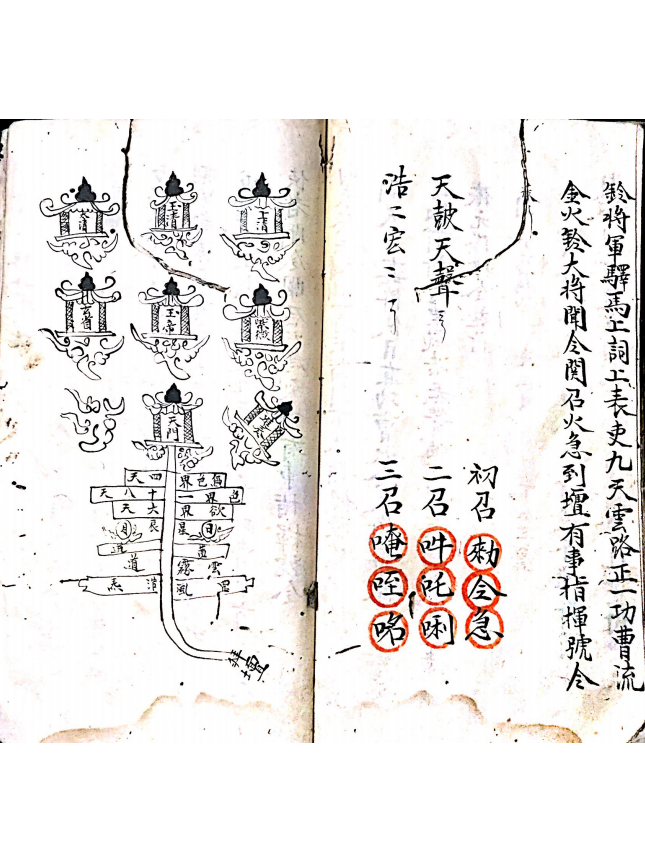 鈴將軍驛馬上詞上表吏九天雲路正一功曹流
金火鈴大將聞令関召火急到壇有事指揮號令
天皷天聲
浩二宏二
初召勅令急
二召吽吒唎
三召唵咥㗊
上清
玉清
太清
紫微
玉帝
玄省
天門
無色界四天
色界一十八天
欲界六天
日星辰月
道
道
雲霞
罡風浩炁
醮壇